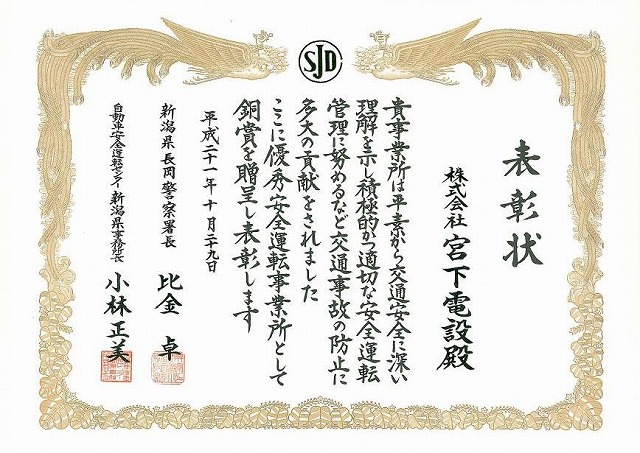 SJD
表彰状
株式会社 宮下電設殿
貴事業所は平素から交通安全に深い
理解を示し積極的かつ適切な安全運転
管理に努めるなど交通事故の防止に
多大の貢献をされました
ここに優秀安全運転事業所として
銅賞を贈呈し表彰します
平成二十一年十月二十九日
新潟県長岡警察署長 比金 卓
自動車安全運転センター新潟県事務所長 小林正美